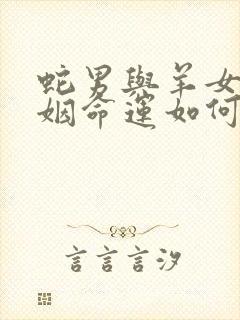 蛇男與羊女
姻命運如何
言言言汐